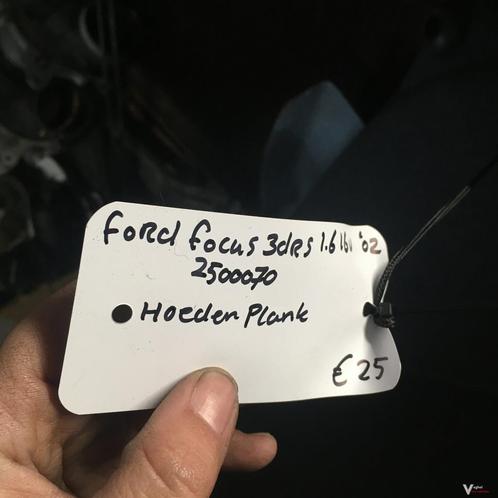 Ford Focus 3drs 1.6 16v '02
2500070
Hoeden Plank
€ 25